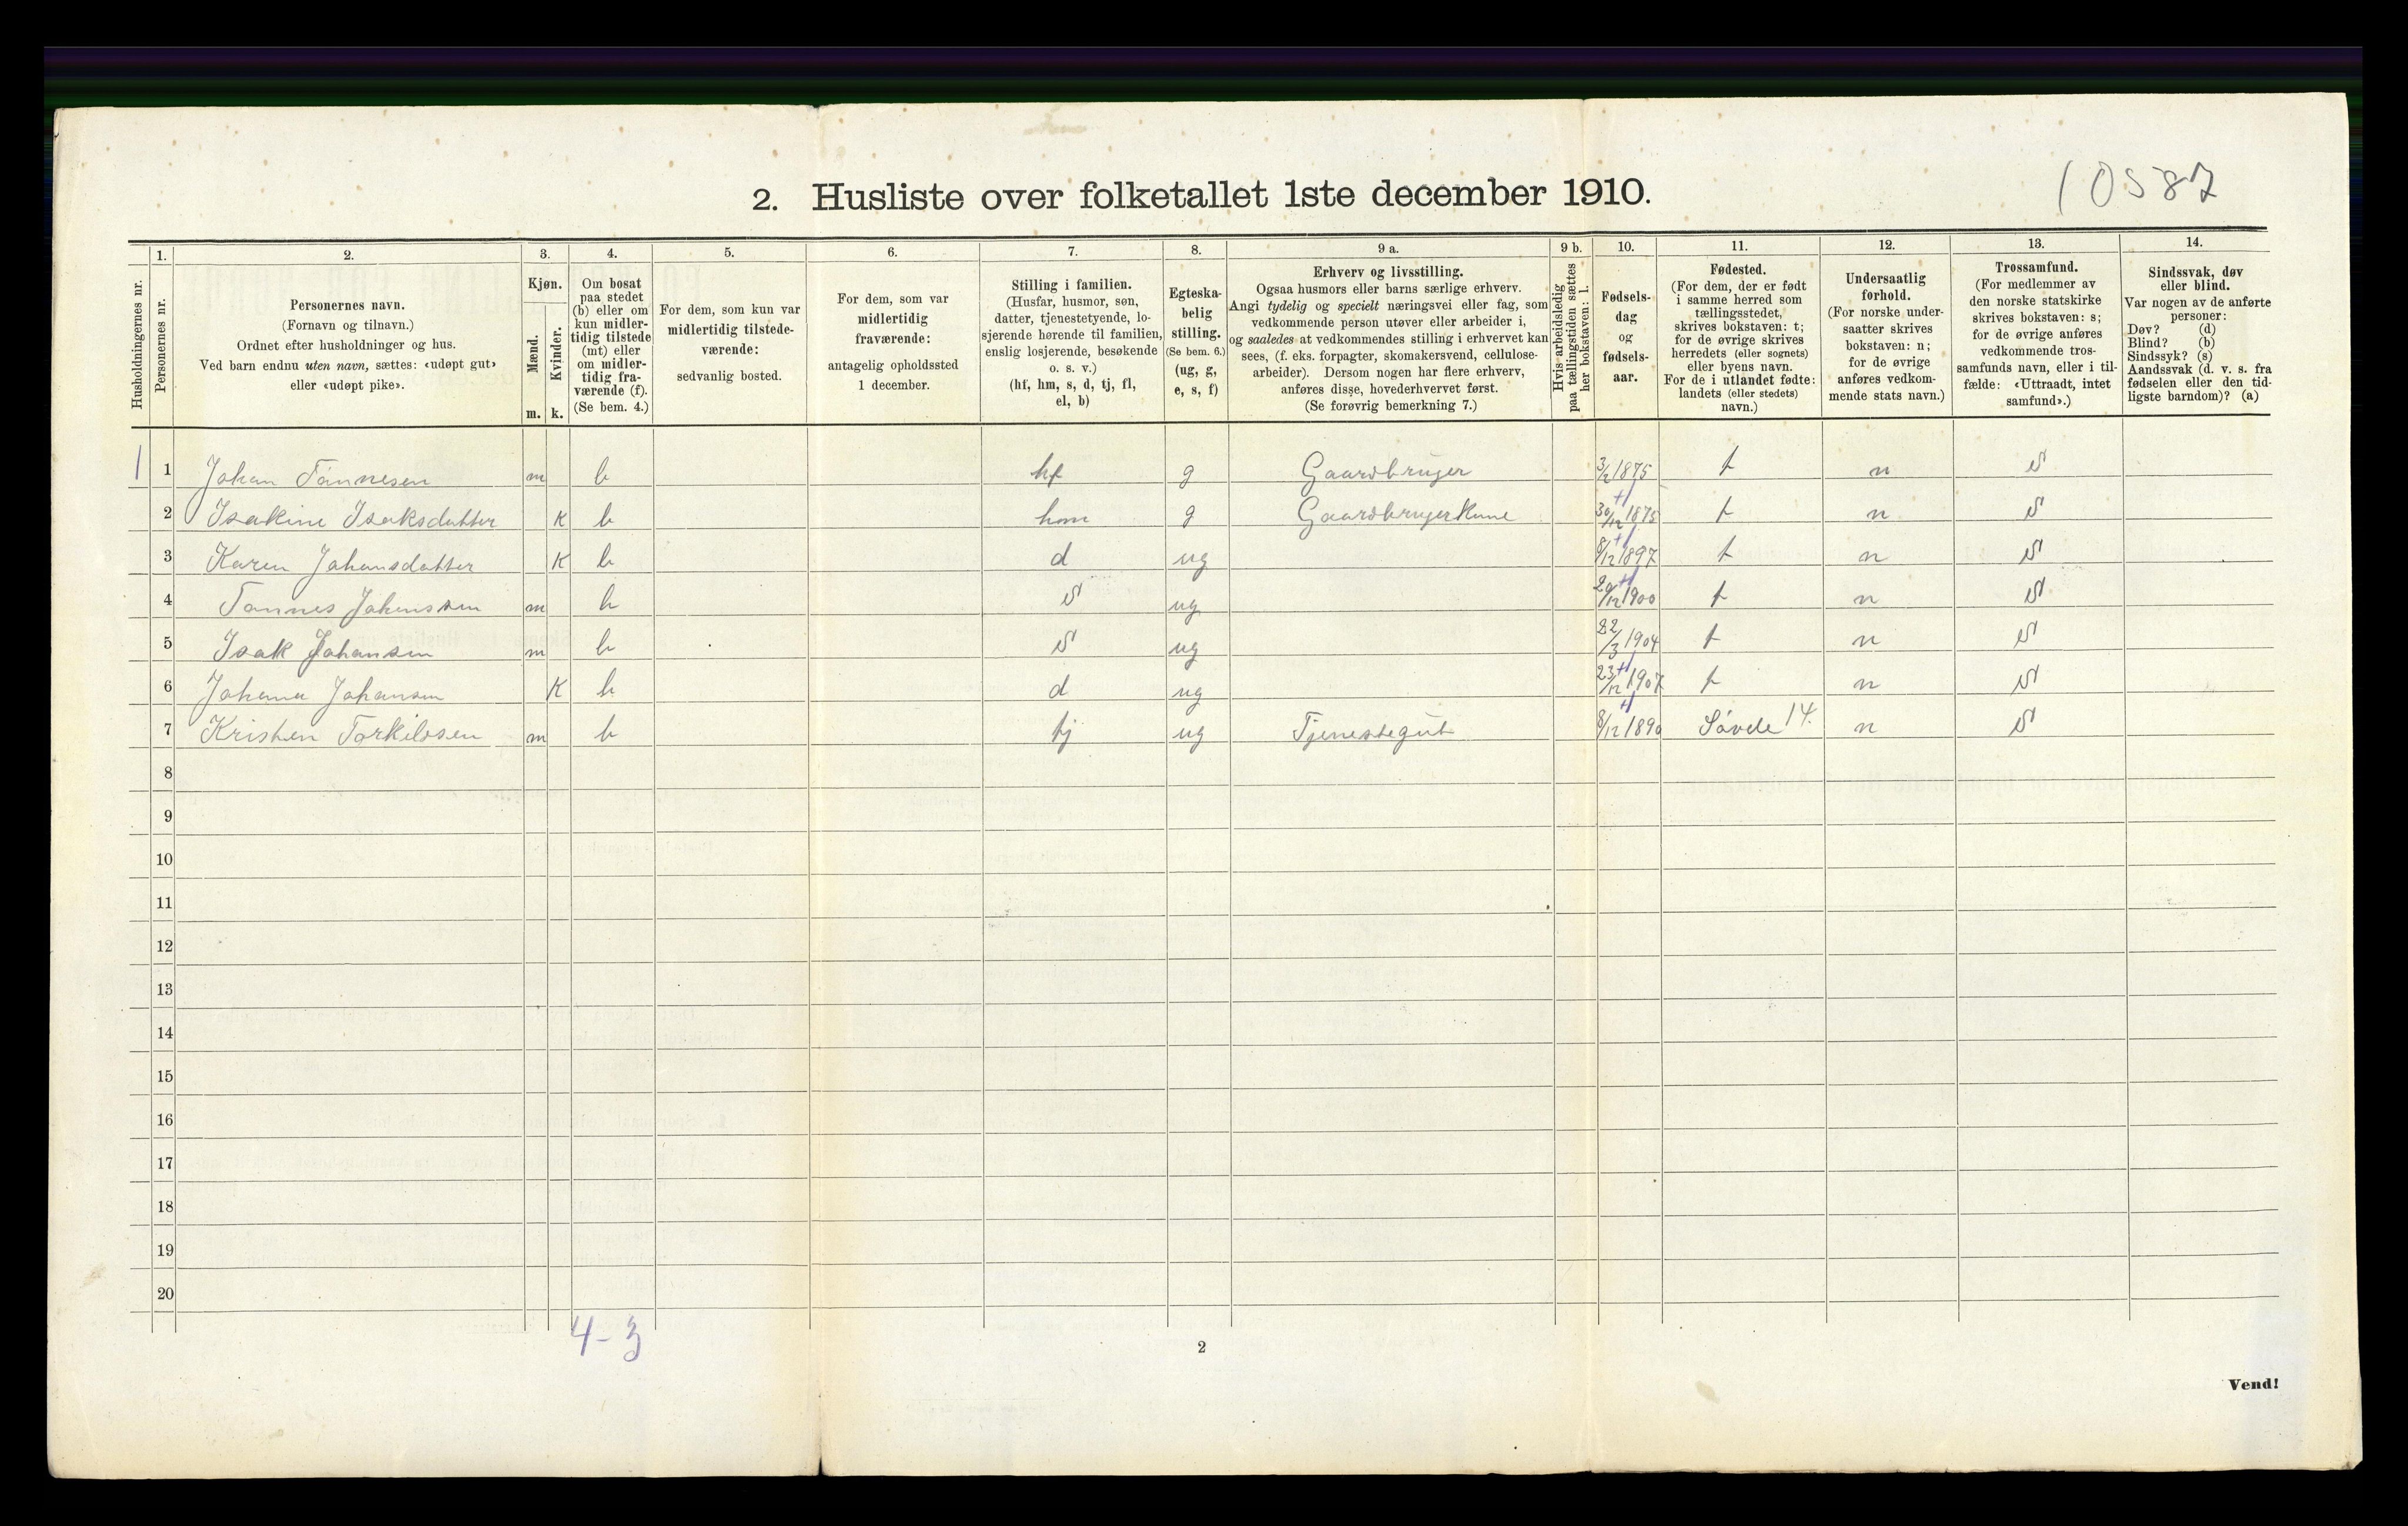 2. Husliste over folketallet 1ste december 1910.
10587
Husholdningernes nr.
1.
Personernes nr.
2.
Personernes navn.
(Fornavn og tilnavn.)
Ordnet efter husholdninger og hus.
Ved barn endnu uten navn, sættes: «udøpt gut»
eller «udøpt pike».
3.
Kjøn.
Mænd.
Kvinder.
m. k.
4.
Om bosat
paa stedet
(b) eller om
kun midler-
tidig tilstede
(mt) eller
om midler-
tidig fra-
værende (f).
(Se bem. 4.)
5.
For dem, som kun var
midlertidig tilstede-
værende:
sedvanlig bosted.
6.
For dem, som var
midlertidig
fraværende:
antagelig opholdssted
1 december.
7.
Stilling i familien.
(Husfar, husmor, søn,
datter, tjenestetyende, lo-
sjerende hørende til familien,
enslig losjerende, besøkende
o. s. v.)
(hf, hm, s, d, tj, fl,
el, b)
8.
Egteska-
belig
stilling.
(Se bem. 6.)
(ug, g,
e, s, f)
9 a.
Erhverv og livsstilling.
Ogsaa husmors eller barns særlige erhverv.
Angi tydelig og specielt næringsvei eller fag, som
vedkommende person utøver eller arbeider i,
og saaledes at vedkommendes stilling i erhvervet kan
sees, (f. eks. forpagter, skomakersvend, cellulose-
arbeider). Dersom nogen har flere erhverv,
anføres disse, hovederhvervet først.
(Se forøvrig bemerkning 7.)
9 b.
Hvis arbeidsledig
paa tællingstiden sættes
her bokstaven: l.
10.
Fødsels-
dag
og
fødsels-
aar.
11.
Fødested.
(For dem, der er født
i samme herred som
tællingsstedet,
skrives bokstaven: t;
for de øvrige skrives
herredets (eller sognets)
eller byens navn.
For de i utlandet fødte:
landets (eller stedets)
navn.)
12.
Undersaatlig
forhold.
(For norske under-
saatter skrives
bokstaven: n;
for de øvrige
anføres vedkom-
mende stats navn.)
13.
Trossamfund.
(For medlemmer av
den norske statskirke
skrives bokstaven: s;
for de øvrige anføres
vedkommende tros-
samfunds navn, eller i til-
fælde: «Uttraadt, intet
samfund».)
14.
Sindssvak, døv
eller blind.
Var nogen av de anførte
personer:
Døv? (d)
Blind? (b)
Sindssyk? (s)
Aandssvak (d. v. s. fra
fødselen eller den tid-
ligste barndom)? (a)
1 1 Johan Tønnesen m b hf g Gaardbruger 3/2 1875 t n S
2 Isakine Isaksdatter K b hm g Gaardbrugerkune 30/12 1875 t n S
3 Karen Johansdatter K b d ug 8/12 1897 t n S
4 Tønnes Johanssen m b S ug 29/12 1900 t n S
5 Isak Johansen m b S ug 22/3 1904 t n S
6 Johana Johansen K b d ug 23/12 1907 t n S
7 Kristen Torkildsen m b tj ug Tjenestegut 8/12 1890 Søvde 14. n S
8
9
10
11
12
13
14
15
16
17
18
19
20
4-3
2
Vend!